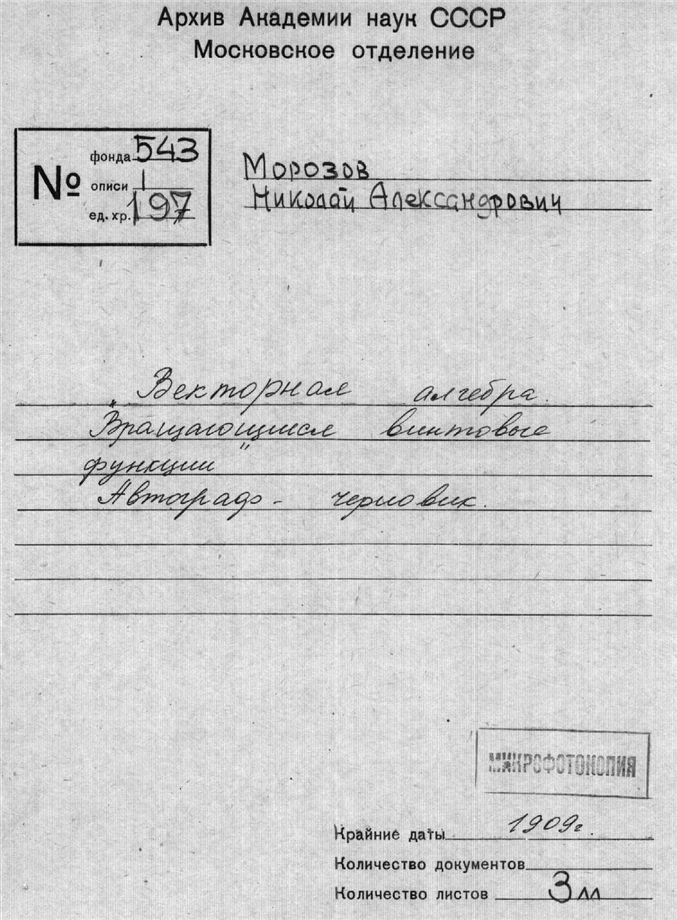 Архив Академии наук СССР
Московское отделение
№
фонда 543
описи 1
ед. хр. 197
Морозов
Николай Александрович
„Векторная алгебра.
Вращающиеся винтовые
функции"
Автограф - черновик.
МИКРОФОТОКОПИЯ
Крайние даты 1909г.
Количество документов
Количество листов 3 лл